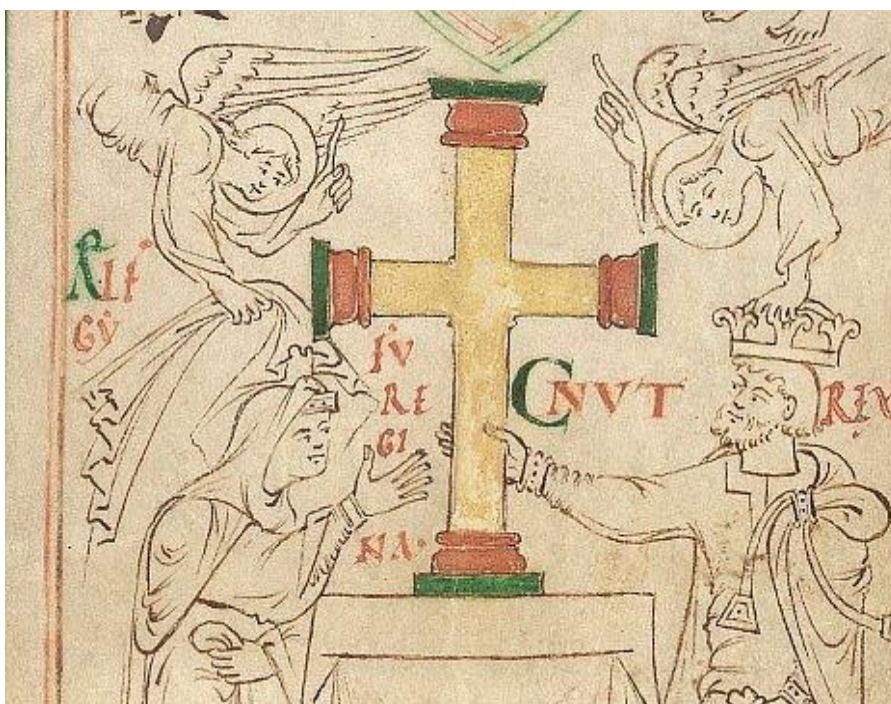 ÆLF
GẎ
FV
RE
GI
NA·
CNVT
REX